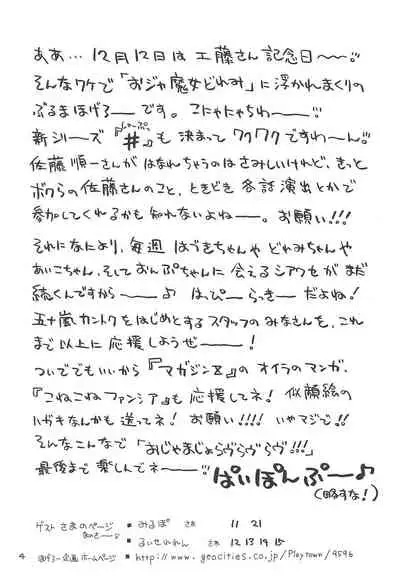 ああ… 12月12日は工藤さん記念日〜〜!!
そんなワケで「おジャ魔女どれみ」に浮かれまくりの
ぶるまほげろーです。こにゃにゃちわー!!
新シリーズ『#』も決まってワクワクですわ〜ん!!
しゃーぷっ
佐藤順一さんがはなれちゃうのはさみしいけれど、きっと
ボクらの佐藤さんのこと、ときどき各話演出とかで
参加してくれるかも知れないよねー。お願い!!!
それになにより、毎週はづきちゃんやどれみちゃんや
あいこちゃん、そしておんぷちゃんに会えるシアワセがまだ
続くんですから――♪ はっぴーらっきーだよね!
五十嵐カントクをはじめとするスタッフのみなさんを、これ
まで以上に応援しようぜー!
ついででもいいから『マガジンZ』のオイラのマンガ、
『こねこねファンシア』も応援してネ! 似顔絵の
ハガキなんかも送ってネ! お願い!!!! いやマジで!!
そんなこんなで「おじゃまじょらヴらヴらヴ!!!」
最後まで楽しんでネ――!! ぱいぽんぷー♪
(略すな!)
ゲストさまのページ ■ みるぽ さま 11 21
■ るいせいれん さま 12 13 14 15
4 ほげろー企画ホームページ ■ http://www.geocities.co.jp/Playtown/9596